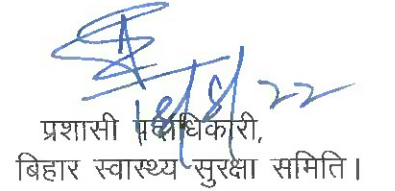 18/8/22
प्रशासी पदाधिकारी,
बिहार स्वास्थ्य सुरक्षा समिति।